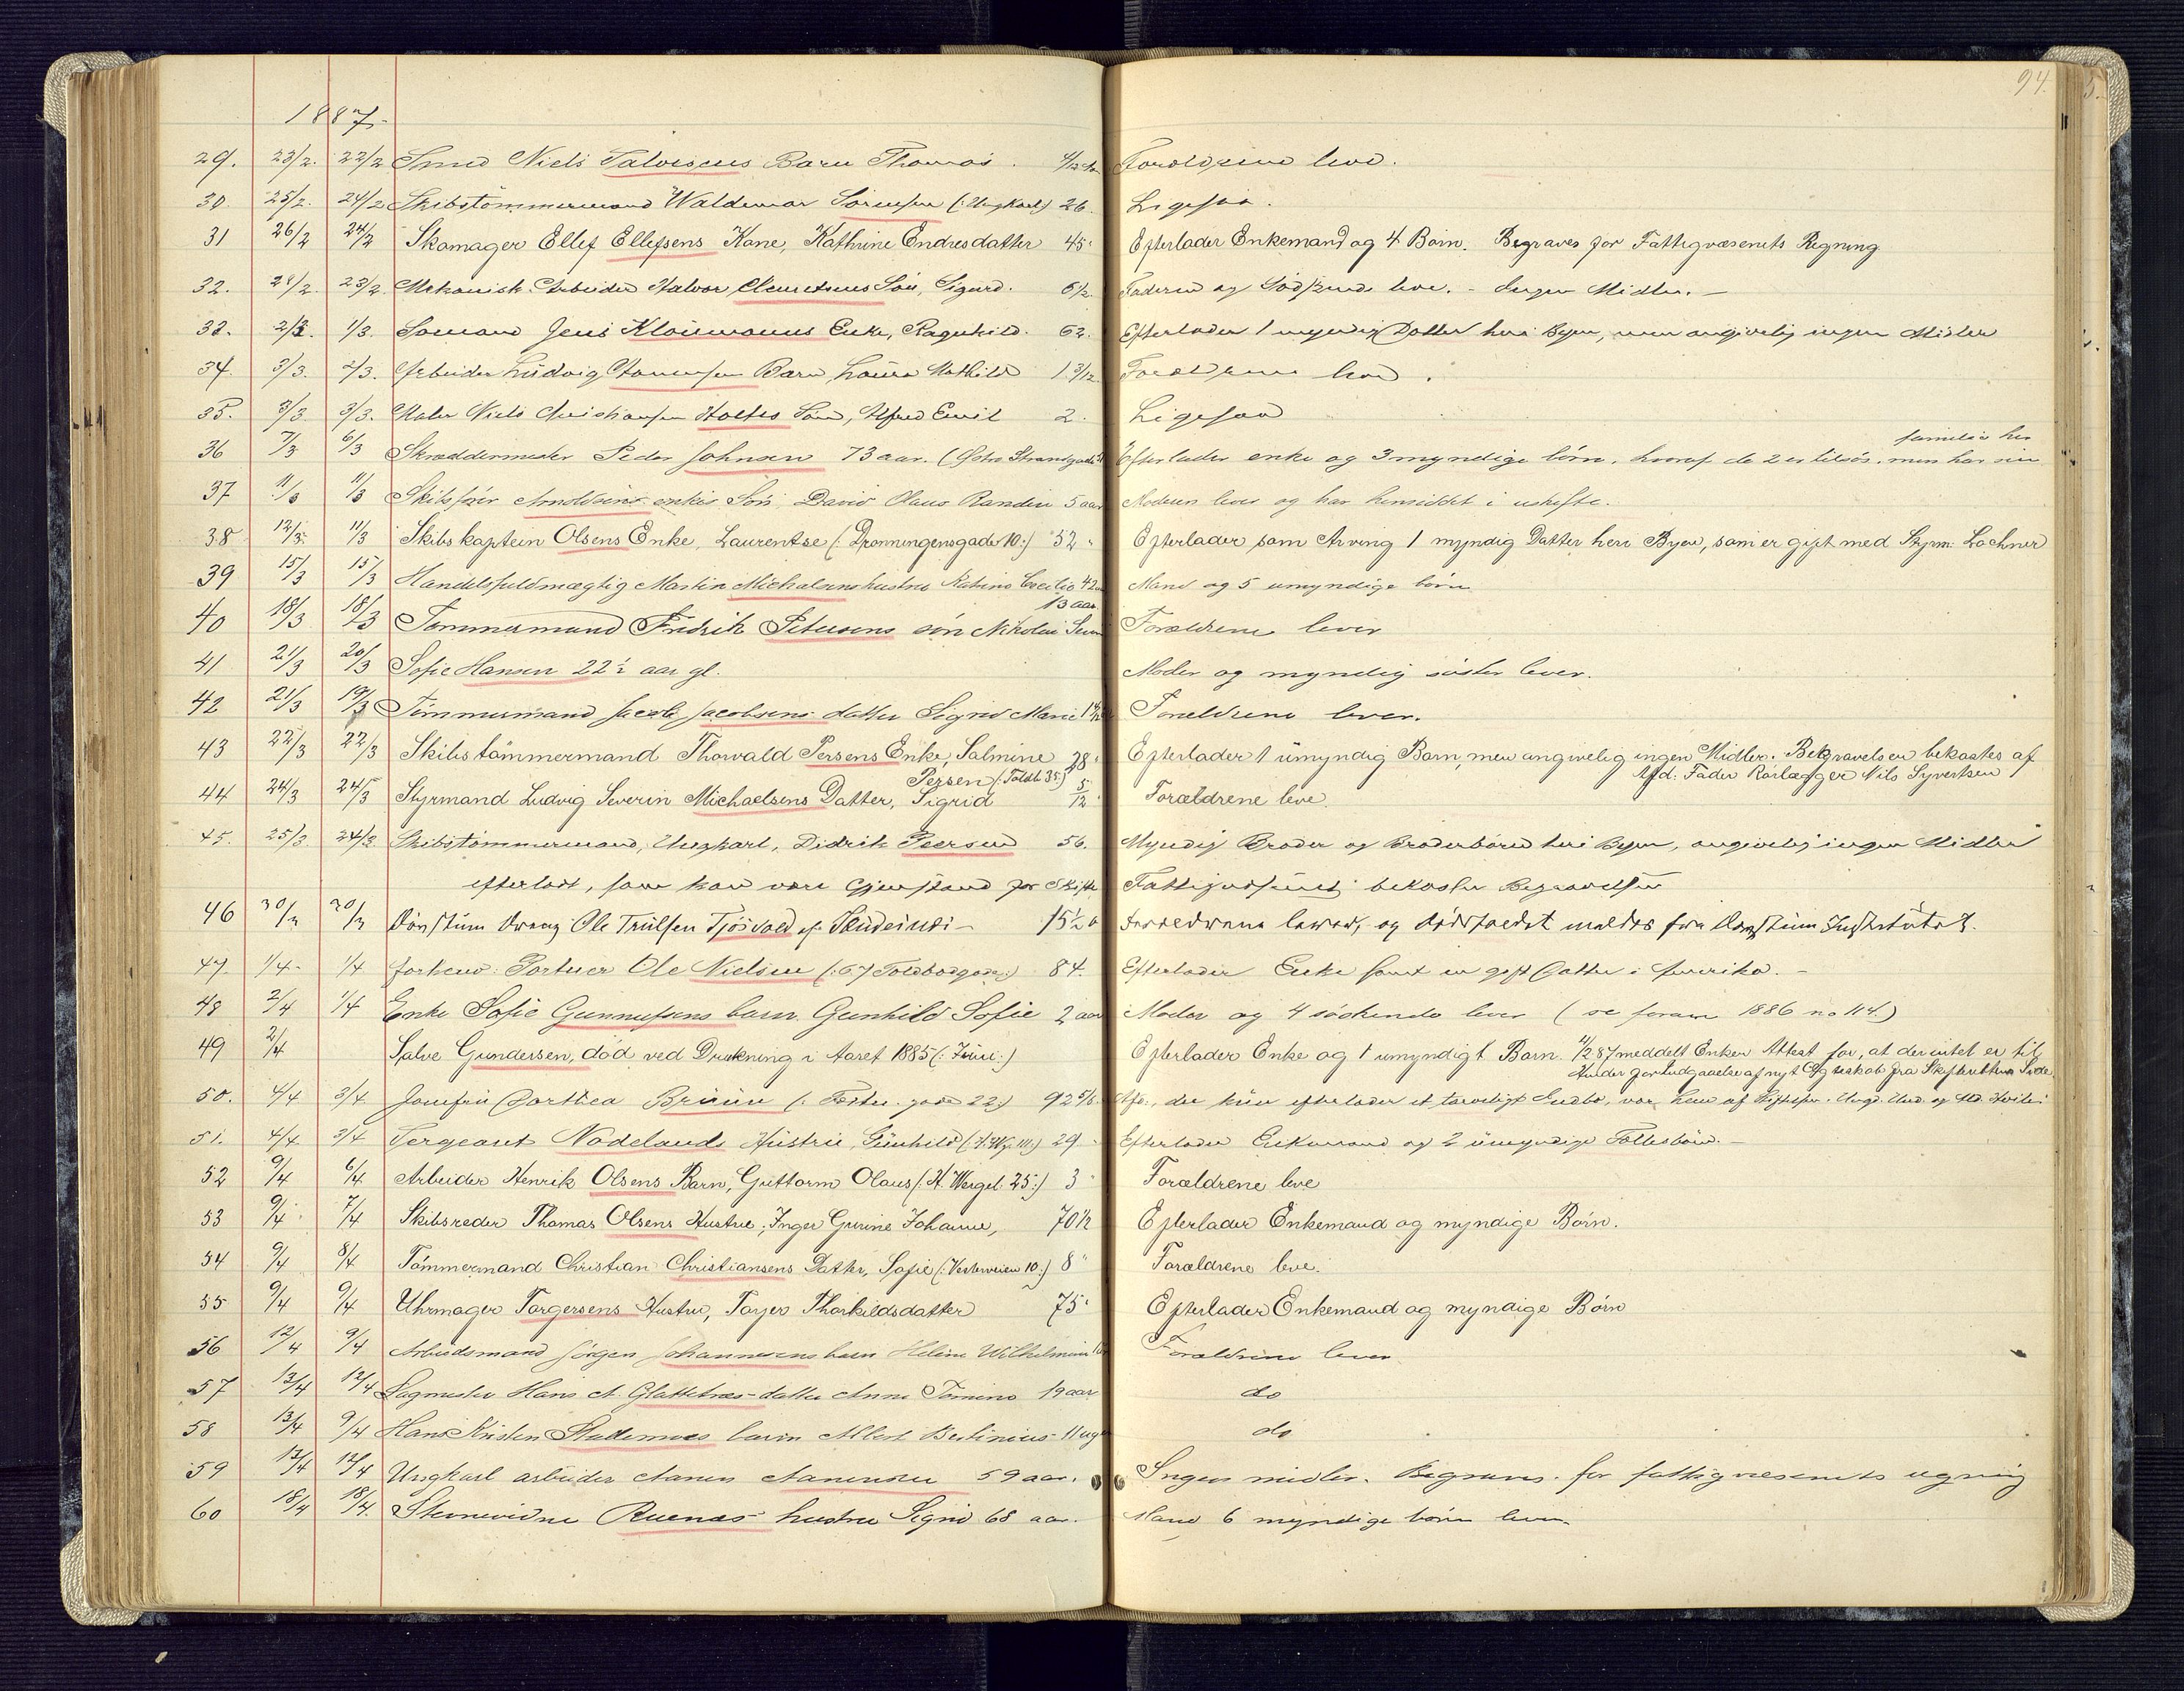 94.
1887
29. 23/2. 22/2 Smed Niels Salvesens Barn Thomas. Forældrene leve.
30. 25/2. 24/2 Skibstømmermand Waldemar Sørensen (: Ungkarl :) 26. Ligesaa.
31 26/2 24/2 Skomager Ellef Ellefsens Kone, Kathrine Endresdatter 45 Efterlader Enkemand og 4 Børn. Begraves for Fattigvæsenets Regning
32. 28/2. 23/2. Mekanisk Arbeider Halvor Clemetsens Søn, Sigurd. 6½ Faderen og Sødskende leve. - Ingen Midler. -
33. 2/3. 1/3. Sømand Jens Enke, Ragnhild. 62. Efterlader 1 myndig Datter heri Byen, men angivelig ingen Midler
34. 3/3. 2/3. Arbeider Ludvig Barn Laura Mathilde 1 3/12 Forældrene leve.
35. 3/3. 3/3. Maler Niels Christiansen Holtes Søn, Alfred Emil 2. Ligesaa
36 7/3 6/3 Skræddermester Peder Johnsen 73 aar. Efterlader enke og 3 myndige børn, hvoraf de 2 er tilsjøs, men har sin
familie her
37 11/3 11/3 Skibsfører enkes Søn, David Olaus Randin 5 aar Moderen lever og har hensiddet i uskifte.
38 12/3. 11/3 Skibskaptein Olsens Enke, Laurentse (: Dronningensgade 10 :) 52 Efterlader som Arving 1 myndig Datter heri Byen, som er gift med Styrm: Lochner
39 15/3 15/3 Handelsfuldmægtig Martin Michalsens hustru Katrine Cecilie 42 Mand og 5 umyndige børn
13 aar
40 18/3 18/3 Tømmermand Fredrik Petersens søn Nikolai Forældrene lever
41 21/3 20/3 Sofie Hansen 22½ aar gl. Moder og myndig søster lever.
42 21/3 19/3 Tømmermand Jacob Jacobsens datter Sigrid Marie Forældrene lever.
43 22/3 22/3 Skibstømmermand Thorvald Persens Enke, Salmine 28 Efterlader 1 umyndig Barn, men angivelig ingen Midler. Begravelsen bekostes af
Persen (: Toldb. 35 :) Afd: Fader Rørlægger Nils Syvertsen
44 24/3 24/3 Styrmand Ludvig Severin Michaelsens Datter, Sigrid 5/12 Forældrene leve.
45. 25/3. 24/3. Skibstømmermand, Ungkarl, Didrik Peersen 56. Myndig Broder og Broderbørn heri Byen, angivelig ingen Midler
efterladt, som kan være Gjenstand for Skifte Fattigvæsenet bekoster Begravelsen
46 30/3 30/3 Døvstum Dreng Ole Trulsen Tjøsvold af 15½ a Forældrene lever, og dødsfaldet meldes fra Døvstum Institutet.
47. 1/4. 1/4 forhenv: Portner Ole Nielsen (: 67 Toldbodgaden :) 84. Efterlader Enke samt en gift Datter i Amerika. -
48 2/4 1/4 Enke Sofie Gunnufsens barn Gunhild Sofie 2 aar Moder og 4 sødskende lever (se foran 1886 no 114.)
49 2/4 Salve Gundersen, død ved Drukning i Aaret 1885 (: Juni :) Efterlader Enke og 1 umyndigt Barn. 87 meddelt Enken Attest for, at der intet er til
Hinder for Indgaaelse af nyt Ægteskab fra Skifterettens Side.
50. 4/4 3/4 Jomfru Dorthea Brüün 22 :) 92 5/6. Afd., der kun efterlader et tarveligt Indbo, var
51. 4/4 3/4 Sergeant Nodelands Hustru, Gunhild 29. Efterlader Enkemand og 2 umyndige Fællesbørn. -
52 9/4 6/4 Arbeider Henrik Olsens Barn, Guttorm Olaus (: H. Wergel. 25 :) 3 Forældrene leve
53 9/4. 7/4 Skibsreder Thomas Olsens Hustru, Inger Gurine Johanne, 70½ Efterlader Enkemand og myndige Børn.
54 9/4 8/4 Tømmermand Christian Christiansens Datter, Sofie (: Vesterveien 10 :) 8 Forældrene leve.
55 9/4 9/4 Uhrmager Torgersens Hustru, Torjer Thorkildsdatter 75 Efterlader Enkemand og myndige Børn
56 12/4 9/4 Arbeidsmand Jørgen Johannesens barn Helene Wilhelmine Forældrene lever
57 13/4 12/4 Lagmester Hans A. Glattetræs datter Anne Tomine 19 aar do
58 13/4 9/4 Hans Kristen barn Albert Bertinius 11 uger do
59 13/4 12/4 Ungkarl arbeider Aanen Aanensen 59 aar. Ingen midler. Begraves for fattigvæsenets regning
60 18/4 18/4. hustru Sigrid 68 aar. Mand 6 myndige børn lever.